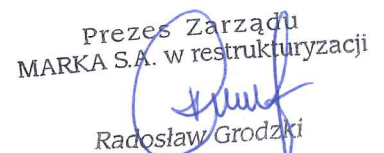 Prezes Zarządu
MARKA S.A. w restrukturyzacji
Radosław Grodzki